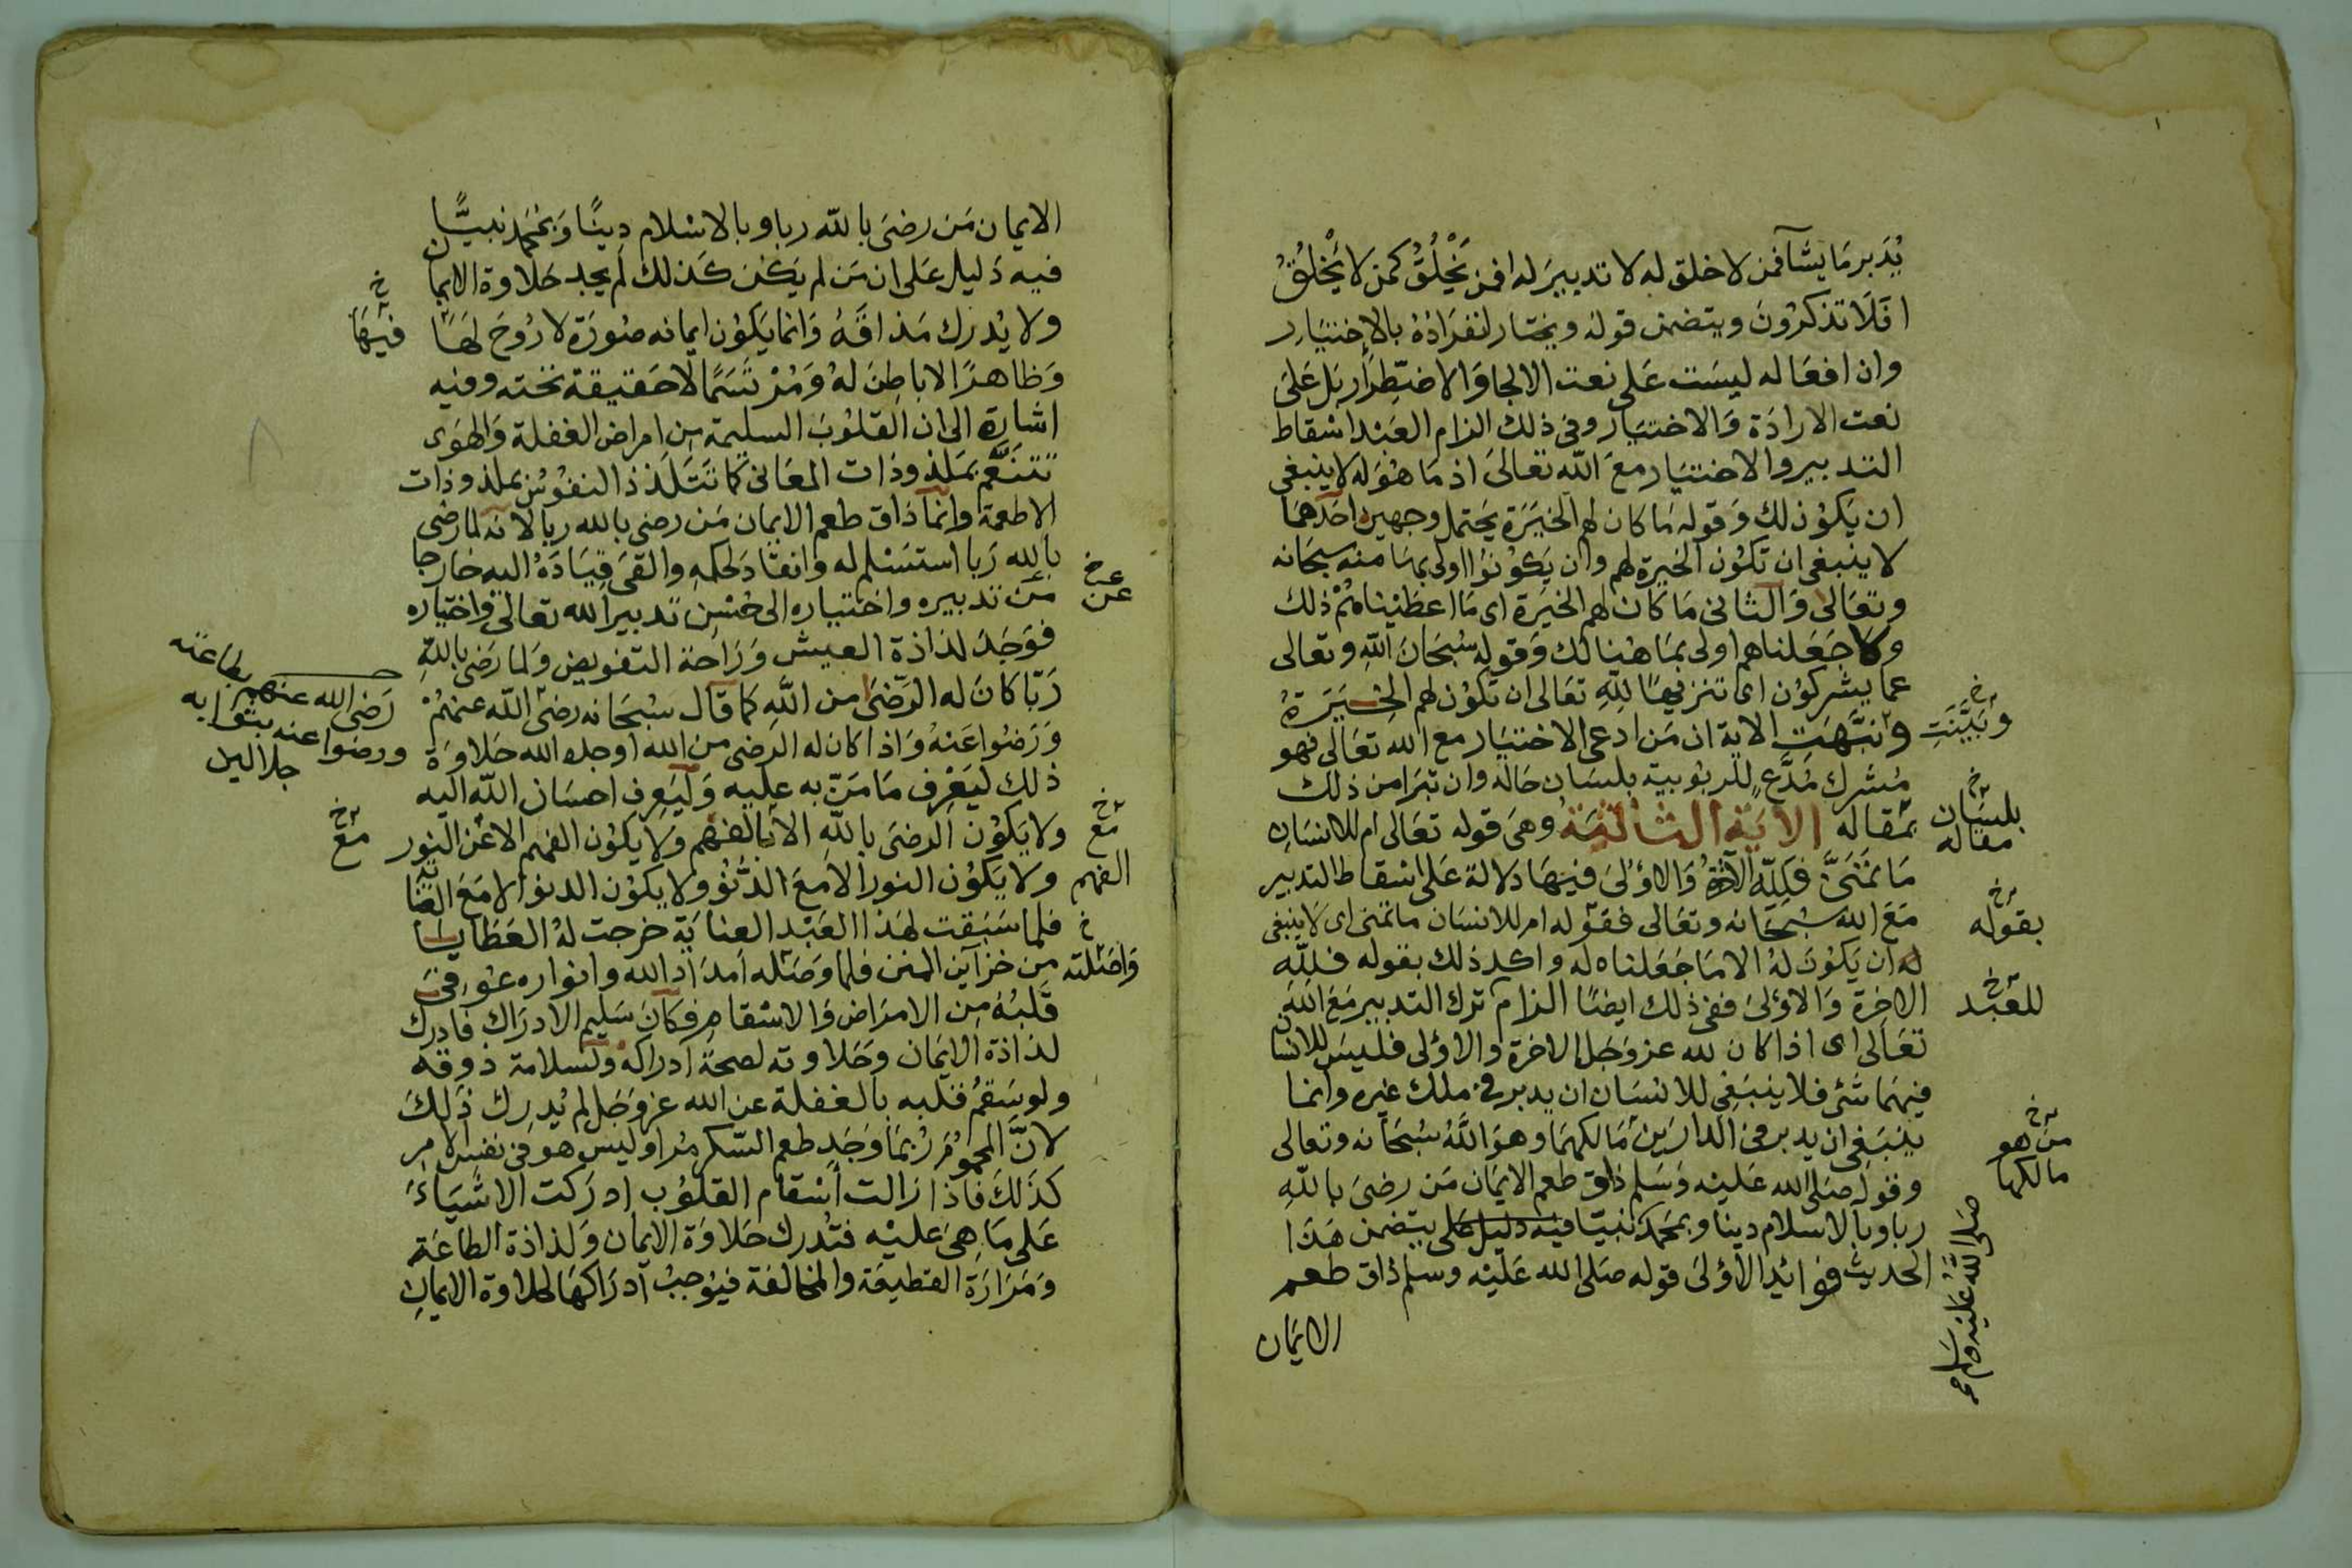 يُدَبر مَا يشآ فمن لا خلق له لا تدبيرَ له افمن يَخْلُقُ كمن لا يَخْلُقُ
افَلَا تذكرُونَ ويتضمن قوله ويختار انفرَادَهُ بالاِختيَارِ
وان افعَاله ليسَت عَلى نعت الالجا وَالاضطِرَار بَل عَلىَ
نعت الارادَة وَالاختيَار وفى ذلك الزام العَبْد اسْقاط
التدبير والاختيَار معَ اللّه تعَالىَ اذ مَا هُوَ له لا ينبغى
ان يَكوُن ذلك وَقوله مَا كان لهم الخيَرَة يحَتمل وجهين احَدهمَا
لا ينبغى ان تكوُن الخيرة لهم وان يَكوُنوُا اولى بهَا منه سبحَانه
وتعَالى وَالثانى مَا كَان لهم الخيَرَة اى مَا اعطَيْنَاهُمْ ذلك
ولا جَعَلناهم اولى بمَا هنالك وَقوله سُبحَانَ اللّهِ وتعالى
عما يشركوُن اى تنزيهًا للّهِ تعَالى ان تكوُن لهم الخِيَرَةُ
وَنبَّهَت الاية ان مَن ادعى الاختيَار مع الله تعَالى فهو
وَبَيَّنَتِ خ
مُشرك مُدَّعٍ للربوُبية بلسَان حَاله وان تبَرَا من ذلك
بمقاله الايَة الثالثَة وهىَ قوله تعَالى ام للانسَانِ
بلسَان مقاله خ
مَا تمَنَّىَ فَلِلّهِ الآخِرَةُ وَالاوُلىَ فيهَا دلالة عَلى اسْقاط التدبير
مَعَ الله سُبحَانه وتعَالى فقوله ام للانسَان ما تمنى اى لا ينبغى
بقوله خ
له ان يَكوُنَ لهُ الا مَا جَعَلناه له واكد ذلك بقوله فللّه
الاخرة وَالاوُلىَ ففى ذلك ايضًا الزام ترك التدبير مَعَ اللّهِ
للعَبْد خ
تعَالى اى اذا كان لله عز وَجَل الاخرة والاوُلى فليسَ للانسان
فيهمَا شَئ فلا ينبَغى للانسَان ان يدبر فى ملك غيره وانما
ينبَغى ان يدبر فى الدارَين مَالكهمَا وهوَ اللّهُ سُبحَانه وتعالى
من هو مالكها خ
وقوله صَلى الله عَليْه وَسَلم ذاق طعم الايمَان مَن رضىَ باللّهِ
ربا وبالاسلام دينا وبمحَمَّد نبيّا فيه دليل على يتضمن هَذا
صَلى اللّهُ عَليْه وسَلم
الحديث فوائد الاوُلىَ قوله صَلى الله عَليْه وسلم ذاق طعم
الايمَان
الايمان مَن رضىَ باللّه ربا وبالاسْلام دِينًا وَبمُحَمَّد نبيًّا
فيه دَليل عَلى ان مَن لم يَكن كذلك لم يجد حَلاوة الايمان
ولا يُدرك مَذاقَهُ وَانما يَكوُن ايمانه صُورَة لا رُوحَ لهَا
فيهَا خ
وَظاهرًا لا باطنَ لهُ وَمُرْتسَمًا لا حَقيقة تحته وفيه
اشارة الى ان القلوُبَ السليمة من امراض الغفلة وَالهوَى
تتنعَّم بمَلذوذات المعَانى كما تَتَلَذذ النفوُس بملذوذات
الاطعمة وانمَا ذاق طعم الايمان مَن رضى بالله ربا لانه لما رضى
بالله رَبا استسْلم له وانقادَ لحكمه والقىَ قيَادَهُ اليه خارجا
من تدبيره واختياره الى حُسْن تدبير الله تعالى واختياره
عن خ
فوَجَدَ لذاذة العيش وَرَاحة التفويض وَلما رَضى باللّهِ
رَبّا كانَ له الرّضىَ من اللّهِ كما قال سُبحَانه رضىَ اللّه عَنهُمْ
وَرَضوُا عَنهُ وَاذا كان له الرضى من الله اوجده الله حَلاوَة
رَضى الله عنهم بطاعته ورضوا عنه بثوابه جلالين
ذلك ليَعْرف مَا مَنّ به عليه وَليَعرف احسَان اللّه اليه
ولا يَكوُن الرضىَ باللّهِ الا بالفهْم ولا يكوُن الفهم الا عَن النور
مع الفهم خ
مع خ
ولا يَكوُن النور الا معَ الدُّنُوِّ ولا يكوُن الدنو الا مَعَ العناية
فلما سَبَقت لهَذا العَبْد العنايَة خرجت لهُ العَطايا
من خزآين المنن فلما وَصَله امدَاد الله وانواره عوُفىَ
وَاصَلته خ
قَلبُهُ مِن الامرَاض وَالاسْقام فكانَ سَليم الادرَاك فادرك
لذاذة الايمَان وَحَلاوته لصحة ادراكه ولسلامة ذوقه
ولو سَقمُ قلبه بالغفلة عن الله عز وَجَل لم يُدرِك ذلِكَ
لانَّ المحموُمَ رُبمَا وَجَدَ طعم السّكر مُرا وليس هو فى نفس الامر
كذلكَ فاذا زالت اسْقام القلوُب ادرَكت الاشيَاءَ
عَلى مَا هِىَ عَليْه فتُدرك حَلاوَة الايمان وَلذاذة الطاعَة
وَمَرَارَة القطيعَة والمخالفة فيوُجبُ ادرَاكهَا لحلاوة الايمان